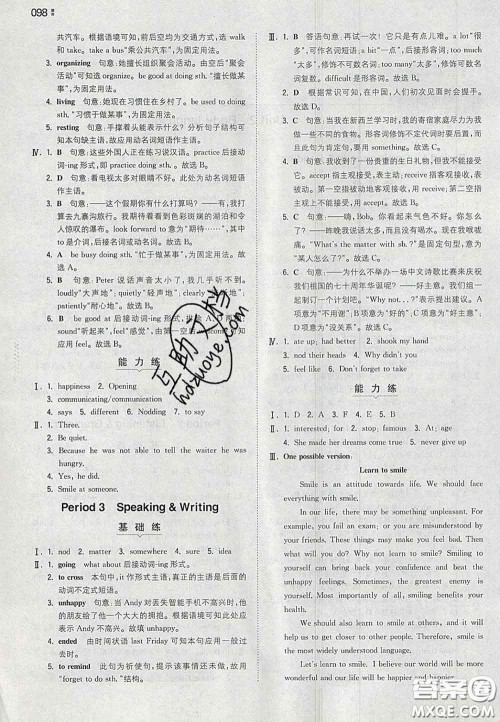 098
共汽车。根据语境可知，前后空均为交通方式，选 walk
和 take。take a bus"乘公共汽车"，为固定用法。
3. organizing 句意：她擅长组织聚会活动。由空后"聚会
活动"可知选 organize。be good at doing sth. "擅长做某
事"，为固定用法。
4. living 句意：她现在习惯住在乡村了。be used to doing
sth. "习惯于做某事"，为固定用法。
5. resting 句意：手撑着头能表示什么？分析句子结构可
知本句缺主语，故应用动名词短语作主语。
Ⅳ. 1. B 句意：这些外国人正在练习说汉语。practice 后接动
词-ing 形式，即动名词形式。故选 B。
2. B 句意：看电视太多对眼睛不好。以动词开头的动名
词短语作主语。故选 B。
3. B 句意：——这个假期你有什么打算吗？——有，我打
算去九寨沟旅行。我期待着看到色彩斑斓的湖泊和令
人惊叹的瀑布。look forward to 意为"期待……"，其中
to 是介词，后接名词或动名词。故选 B。
4. B be busy doing sth. "忙于做某事"，为固定用法。
故选 B。
5. B 句意：Peter 说话声音太小了，我几乎听不到。
loudly"大声地"；quietly"轻声地"；clearly"清楚地"；
patiently"耐心地"。故选 B。
6. B be good at 后接动词-ing 形式，
sound"听起来"，feel"感觉"，由
应用 feel。故选 B。
能 力 练
Ⅰ. 1. happiness 2. Opening
3. communicating/communication
4. says 5. different 6. Nodding 7. to say
Ⅱ. 1. Three.
2. Be quiet.
3. Because he was not able to tell the waiter he was
hungry.
4. Yes, he did.
5. Smile at someone.
Period 3 Speaking & Writing
基 础 练
Ⅰ. 1. nod 2. matter 3. somewhere 4. sure 5. idea
Ⅱ. 1. going what about 后接动词-ing 形式。
2. to cross 本句中，it 作形式主语，真正的主语是后面的
动词不定式短语。
3. unhappy 句意：当 Andy 对丢失智能手机不高兴时，他
的朋友给了他一个大大的拥抱。根据语境可知，此处应
表示 Andy 不高兴。故填 unhappy。
4. ended 由时间状语 last Friday 可知本句应用一般过
去时。
5. to remind 此句为祈使句，提示某人该做某事还没做，
用"forget to do sth."结构。
Ⅲ. 1. B 答语句意：再试一次！它只是有点儿难。a lot"很
多"，后接名词短语；a bit"一点"，后接形容词；too much
"太多"，修饰不可数名词；too many"太多"，修饰可数名
词复数。difficult 是形容词。故选 B。
2. D 根据常识可知，在中国，人们初次见面时会握手。
故选 D。
3. C 句意：当我在新西兰学习时，我的寄宿家庭尽力为我
做一些不同的食物。形容词修饰不定代词时要放在不
定代词之后。故选 C。
4. C 句意：我收到了一份贵重的生日礼物，但我不想接受
它。accept 指主观接受，receive 指客观接收，不表示接
受。第一空指被动地客观接收，用 receive；第二空指主
观上接受，用 accept。故选 C。
5. C 句意：——你看起来气色不好，Bob。你怎么了？
——昨晚我话说太多，而且没有喝水。现在我喉咙疼。
"What's the matter with sb. ?"是固定句型，意为
"某人怎么了？"故选 C。
6. C 句意：——为什么不举办一场中文诗歌比赛来庆祝
我们祖国的七十周年华诞呢？——好主意，我们一起制
订一个计划吧。"Why not do ...?"表示提出建议。A
项意为"不用谢"；B 项意为"这取决于你"；C 项意为"好
主意"；D 项意为"没关系"。故选 C。
Ⅳ. 1. ate up; had better 2. shook my hand
3. nod their heads 4. Why didn't you
5. feel like 6. Don't forget to take
能 力 练
Ⅰ. 1. D 2. A 3. F 4. E 5. B
Ⅱ. 1. interested; for 2. stop; famous 3. At; age
4. She made her dreams come true. 5. smiled at
Ⅲ. One possible version:
Learn to smile
Smile is an attitude towards life. We should face
everything with smile.
In our life, there may be something unpleasant. For
example, you fail an exam; or you are misunderstood by
your friends. These things may make you feel bad and
unhappy. Why not learn to smile? Smiling to yourself
can bring back your confidence and beat the
unhappy feelings. Sometimes, the greatest enemy is
yourself. Most importantly, smiling makes you feel
better.
We should also learn to smile at others. It will help
us get closer to other people. Therefore, smile is the
most widely understood language.
Let's learn to smile. I believe our world will be more
wonderful and our life will be happier.
互助文档
hdzuoye.com
答案圈
MXQE.COM